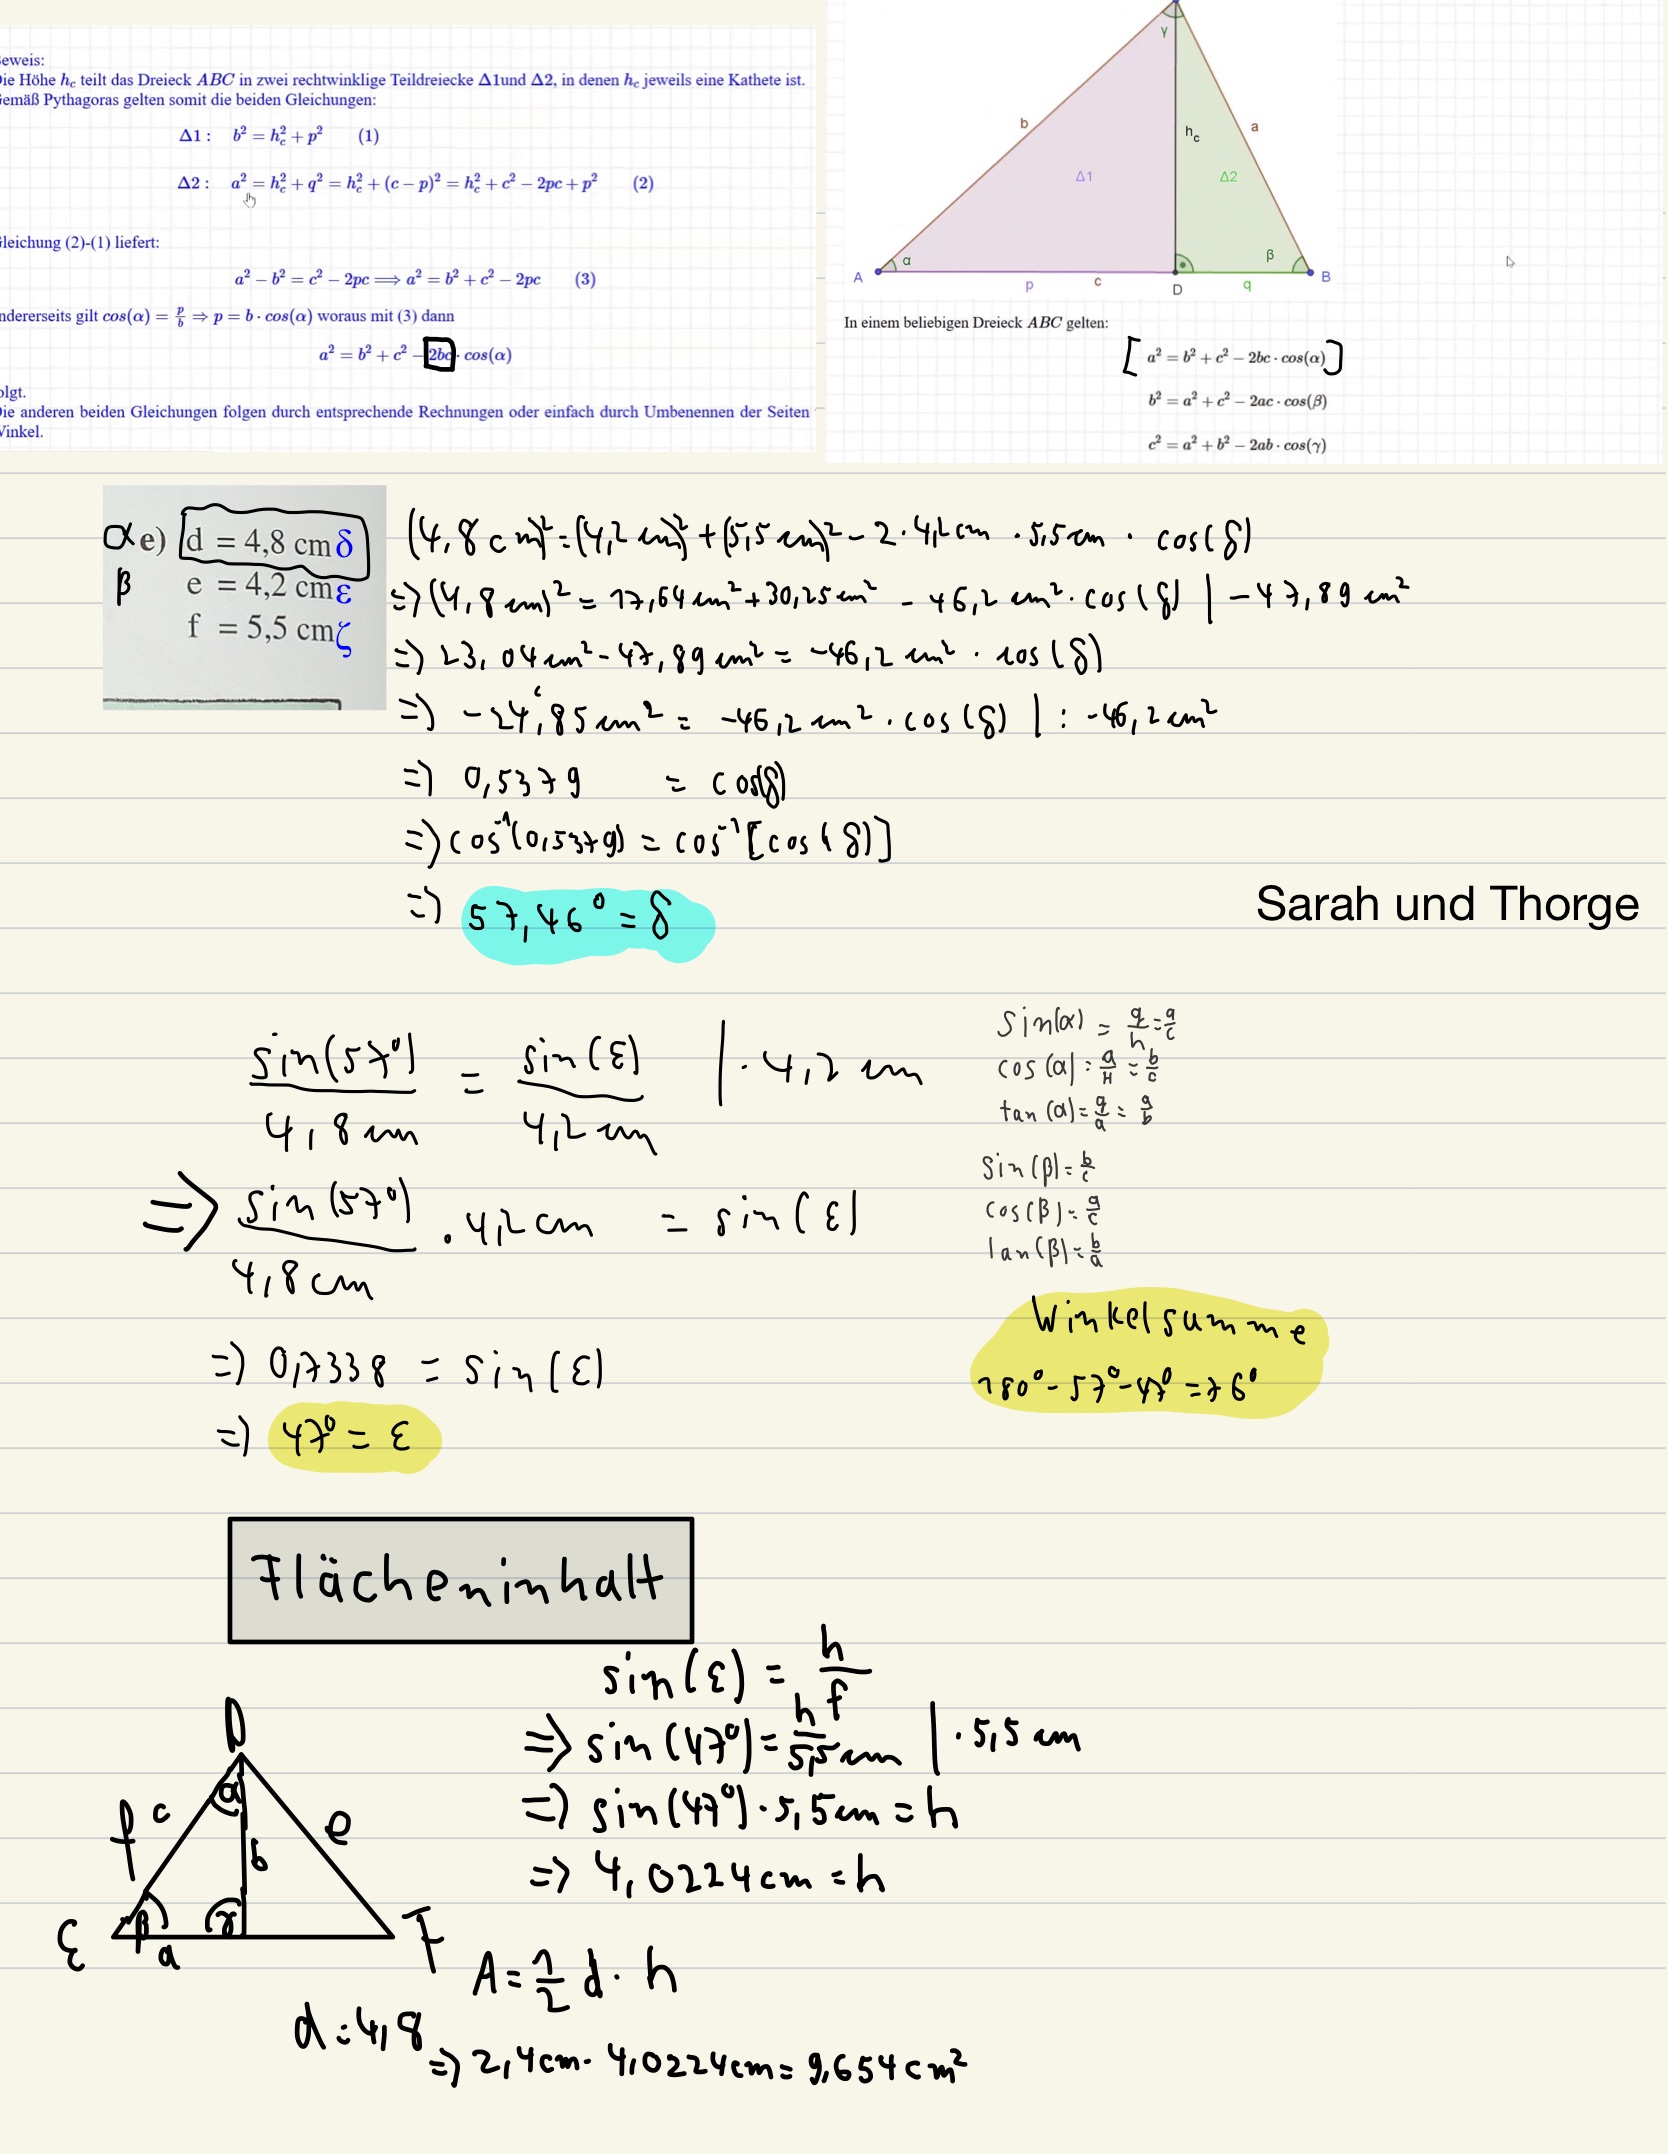 eweis:
ie Höhe h_c teilt das Dreieck ABC in zwei rechtwinklige Teildreiecke Δ1und Δ2, in denen h_c jeweils eine Kathete ist.
emäß Pythagoras gelten somit die beiden Gleichungen:
Δ1 : b² = h_c² + p² (1)
Δ2 : a² = h_c² + q² = h_c² + (c − p)² = h_c² + c² − 2pc + p² (2)
leichung (2)-(1) liefert:
a² − b² = c² − 2pc ⟹ a² = b² + c² − 2pc (3)
ndererseits gilt cos(α) = p/b ⇒ p = b · cos(α) woraus mit (3) dann
a² = b² + c² − 2bc · cos(α)
olgt.
ie anderen beiden Gleichungen folgen durch entsprechende Rechnungen oder einfach durch Umbenennen der Seiten
Vinkel.
γ
b
h_c
a
Δ1
Δ2
A
α
β
B
p
c
D
q
In einem beliebigen Dreieck ABC gelten:
[ a² = b² + c² − 2bc · cos(α) ]
b² = a² + c² − 2ac · cos(β)
c² = a² + b² − 2ab · cos(γ)
α e) d = 4,8 cm δ
β e = 4,2 cm ε
f = 5,5 cm ζ
(4,8 cm)² = (4,2 cm)² + (5,5 cm)² − 2 · 4,2 cm · 5,5 cm · cos(δ)
=> (4,8 cm)² = 17,64 cm² + 30,25 cm² − 46,2 cm² · cos(δ) | − 47,89 cm²
=> 23,04 cm² − 47,89 cm² = −46,2 cm² · cos(δ)
=> −24,85 cm² = −46,2 cm² · cos(δ) | : −46,2 cm²
=> 0,5379 = cos(δ)
=> cos⁻¹(0,5379) = cos⁻¹[cos(δ)]
=> 57,46° = δ
Sarah und Thorge
sin(57°)/4,8 cm = sin(ε)/4,2 cm | · 4,2 cm
=> sin(57°)/4,8 cm · 4,2 cm = sin(ε)
=> 0,7338 = sin(ε)
=> 47° = ε
sin(α) = g/h = a/c
cos(α) = a/H = b/c
tan(α) = g/a = a/b
sin(β) = b/c
cos(β) = a/c
tan(β) = b/a
Winkelsumme
180° − 57° − 47° = 76°
Flächeninhalt
sin(ε) = h/f
=> sin(47°) = h/5,5 cm | · 5,5 cm
=> sin(47°) · 5,5 cm = h
=> 4,0224 cm = h
D
α
f c
e
b
β
γ
ε
a
F
A = 1/2 d · h
d = 4,8
=> 2,4 cm · 4,0224 cm = 9,654 cm²